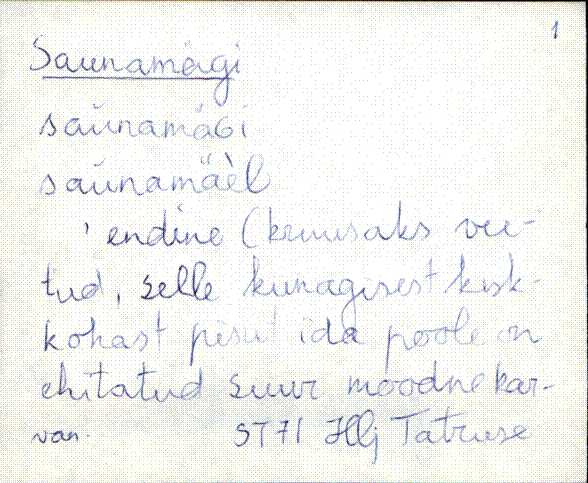 1
Saunamägi
saùnamäGi
saùnamäèl
' endine (kruusaks vee-
tud, selle kunagisest kesk-
kohast pisut ida poole on
ehitatud suur moodne kar-
van. ST71 Hlj Tatruse